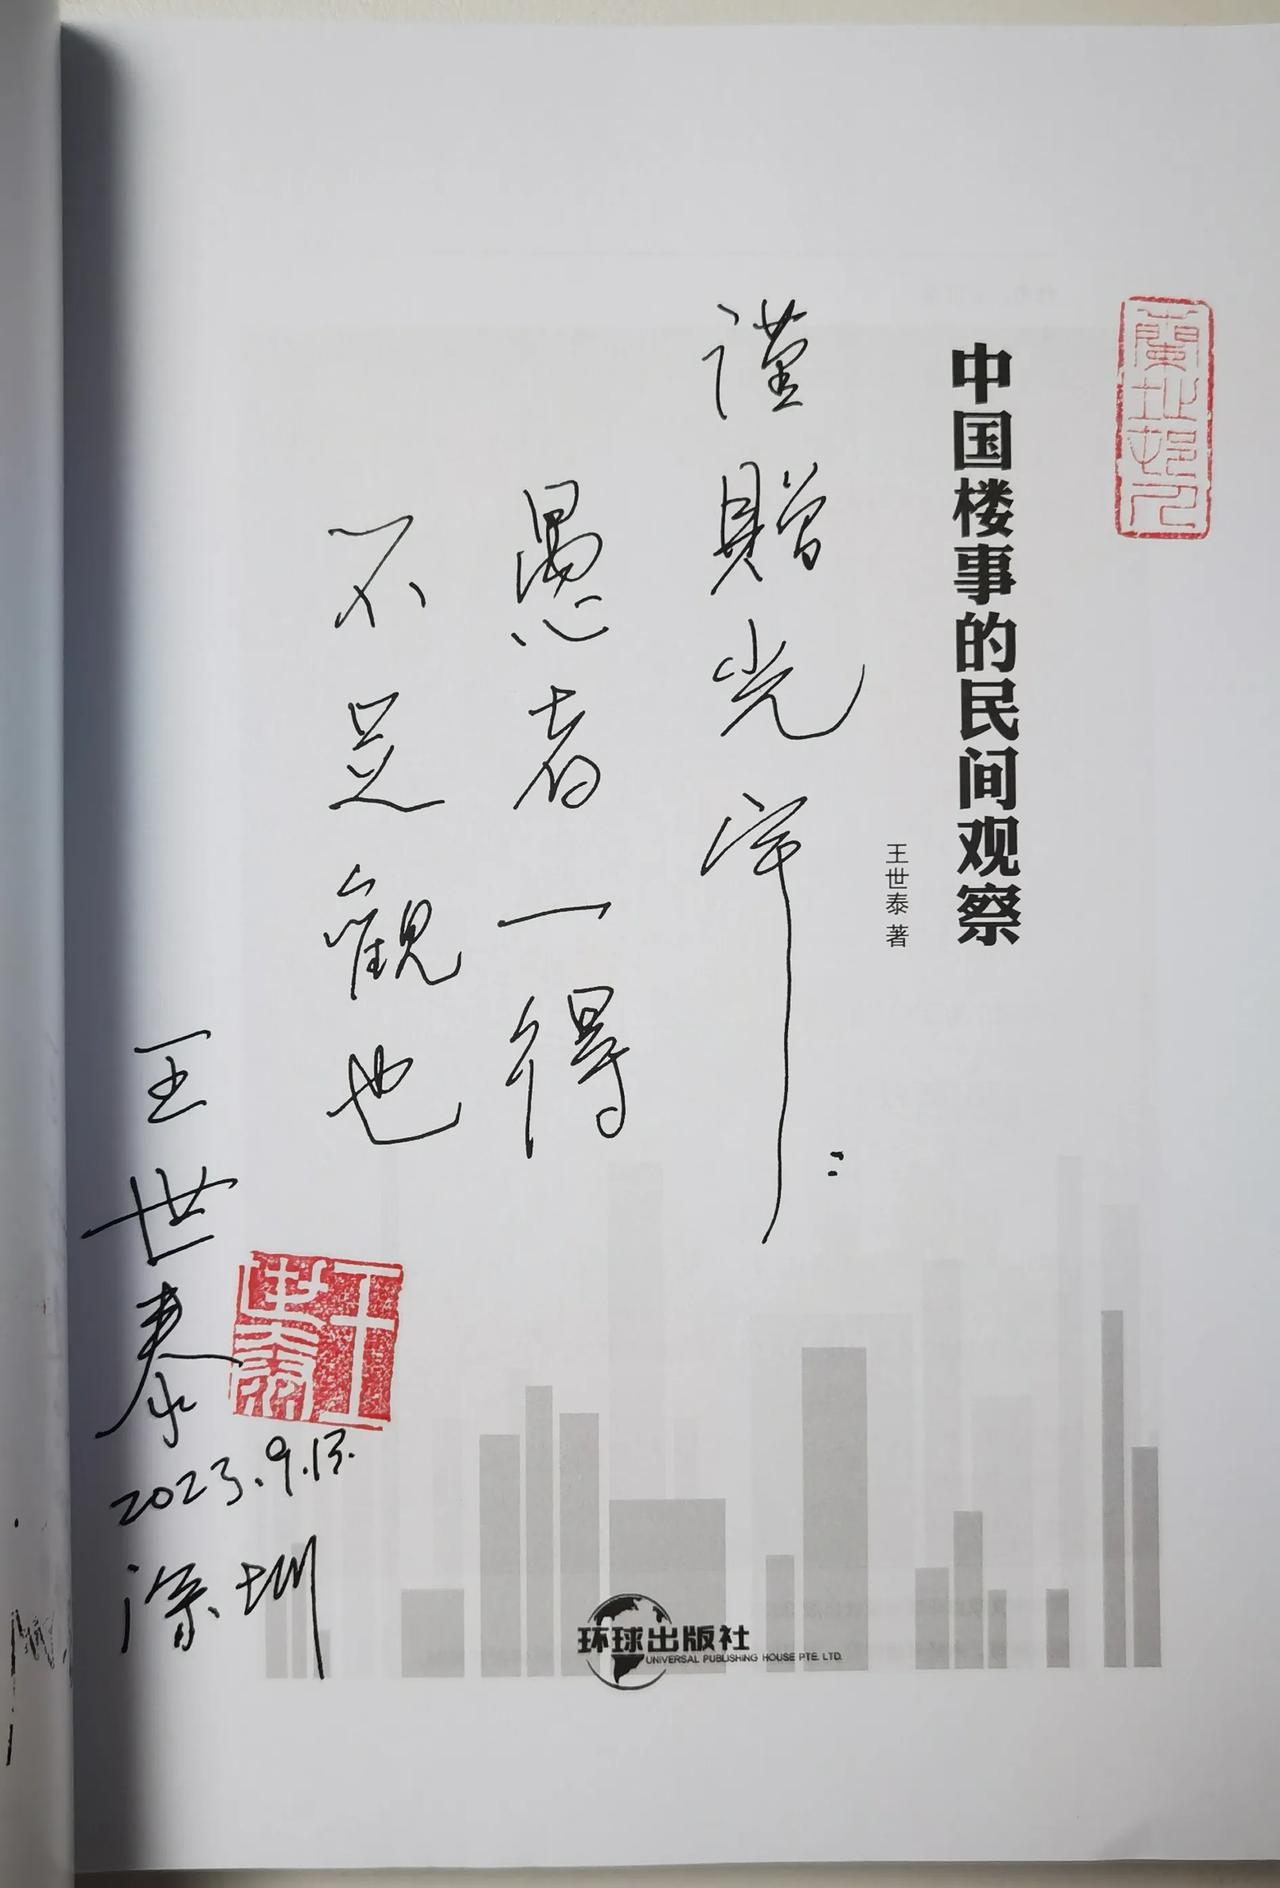 中国楼事的民间观察
王世泰 著
謹贈光宇:
愚者一得
不足觀也
王世泰
王世泰
2023.9.13.
深圳
环球出版社
UNIVERSAL PUBLISHING HOUSE PTE. LTD.